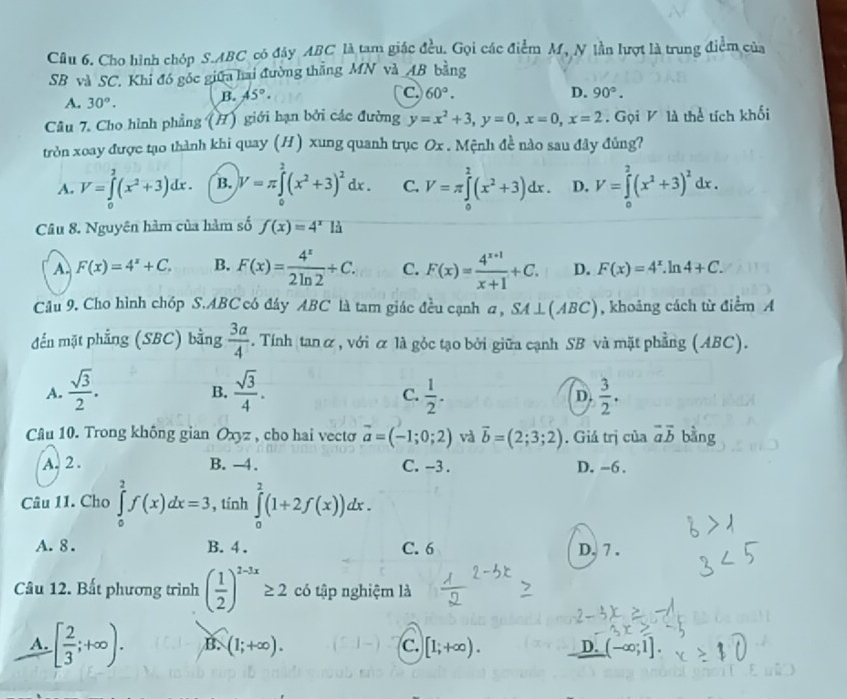 Câu 6. Cho hình chóp S.ABC có đáy ABC là tam giác đều. Gọi các điểm M, N lần lượt là trung điểm của
SB và SC. Khi đó góc giữa hai đường thẳng MN và AB bằng
A. 30°. B. 45°. C. 60°. D. 90°.
Câu 7. Cho hình phẳng (H) giới hạn bởi các đường y = x² + 3, y = 0, x = 0, x = 2. Gọi V là thể tích khối
tròn xoay được tạo thành khi quay (H) xung quanh trục Ox. Mệnh đề nào sau đây đúng?
A. V = ∫₀² (x² + 3) dx. B. V = π∫₀² (x² + 3)² dx. C. V = π∫₀² (x² + 3) dx. D. V = ∫₀² (x² + 3)² dx.
Câu 8. Nguyên hàm của hàm số f(x) = 4ˣ là
A. F(x) = 4ˣ + C. B. F(x) = 4ˣ/(2 ln 2) + C. C. F(x) = 4ˣ⁺¹/(x+1) + C. D. F(x) = 4ˣ.ln 4 + C.
Câu 9. Cho hình chóp S.ABC có đáy ABC là tam giác đều cạnh a, SA ⊥ (ABC), khoảng cách từ điểm A
đến mặt phẳng (SBC) bằng 3a/4. Tính tan α, với α là góc tạo bởi giữa cạnh SB và mặt phẳng (ABC).
A. √3/2. B. √3/4. C. 1/2. D. 3/2.
Câu 10. Trong không gian Oxyz, cho hai vectơ a⃗ = (-1;0;2) và b⃗ = (2;3;2). Giá trị của a⃗.b⃗ bằng
A. 2. B. -4. C. -3. D. -6.
Câu 11. Cho ∫₀² f(x) dx = 3, tính ∫₀² (1 + 2f(x)) dx.
A. 8. B. 4. C. 6 D. 7.
3 < 5
Câu 12. Bất phương trình (1/2)²⁻³ˣ ≥ 2 có tập nghiệm là
2-3x ≥ -1
A. [2/3; +∞). B. (1; +∞). C. [1; +∞). D. (-∞; 1].